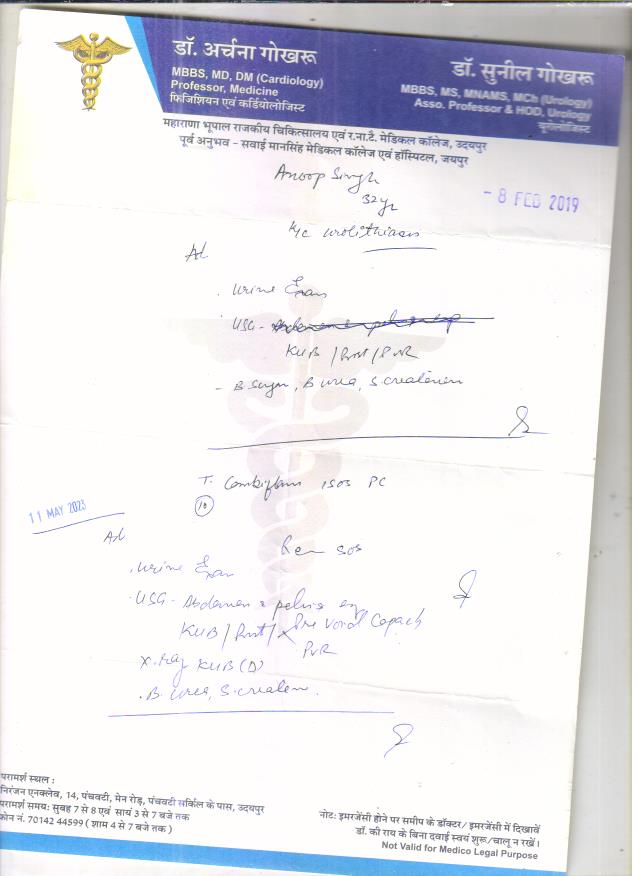 डॉ. अर्चना गोखरू
MBBS, MD, DM (Cardiology)
Professor, Medicine
फिजिशियन एवं कर्डियोलोजिस्ट
डॉ. सुनील गोखरू
MBBS, MS, MNAMS, MCh (Urology)
Asso. Professor & HOD, Urology
यूरोलोजिस्ट
महाराणा भूपाल राजकीय चिकित्सालय एवं र.ना.टै. मेडिकल कॉलेज, उदयपुर
पूर्व अनुभव - सवाई मानसिंह मेडिकल कॉलेज एवं हॉस्पिटल, जयपुर
Anoop Singh
32 yr
- 8 FEB 2019
K/c Urolithiasis
Ad
. Urine Exam
. USG -
KUB / Prost / PVR
- B. Sugar, B. Urea, S. Creatinine
T. Combiflam 1 SOS PC
(10)
11 MAY 2023
Ad
Rev SOS
. Urine Exam
. USG - Abdomen & pelvis
KUB / Prost / Pre void Capacity
PVR
X-Ray KUB (D)
. B. Urea, S. Creatinine.
परामर्श स्थल :
निरंजन एनक्लेव, 14, पंचवटी, मेन रोड़, पंचवटी सर्किल के पास, उदयपुर
परामर्श समय: सुबह 7 से 8 एवं सायं 3 से 7 बजे तक
फोन नं. 70142 44599 ( शाम 4 से 7 बजे तक )
नोट: इमरजेंसी होने पर समीप के डॉक्टर/ इमरजेंसी में दिखावें
डॉ. की राय के बिना दवाई स्वयं शुरू/चालू न रखें।
Not Valid for Medico Legal Purpose